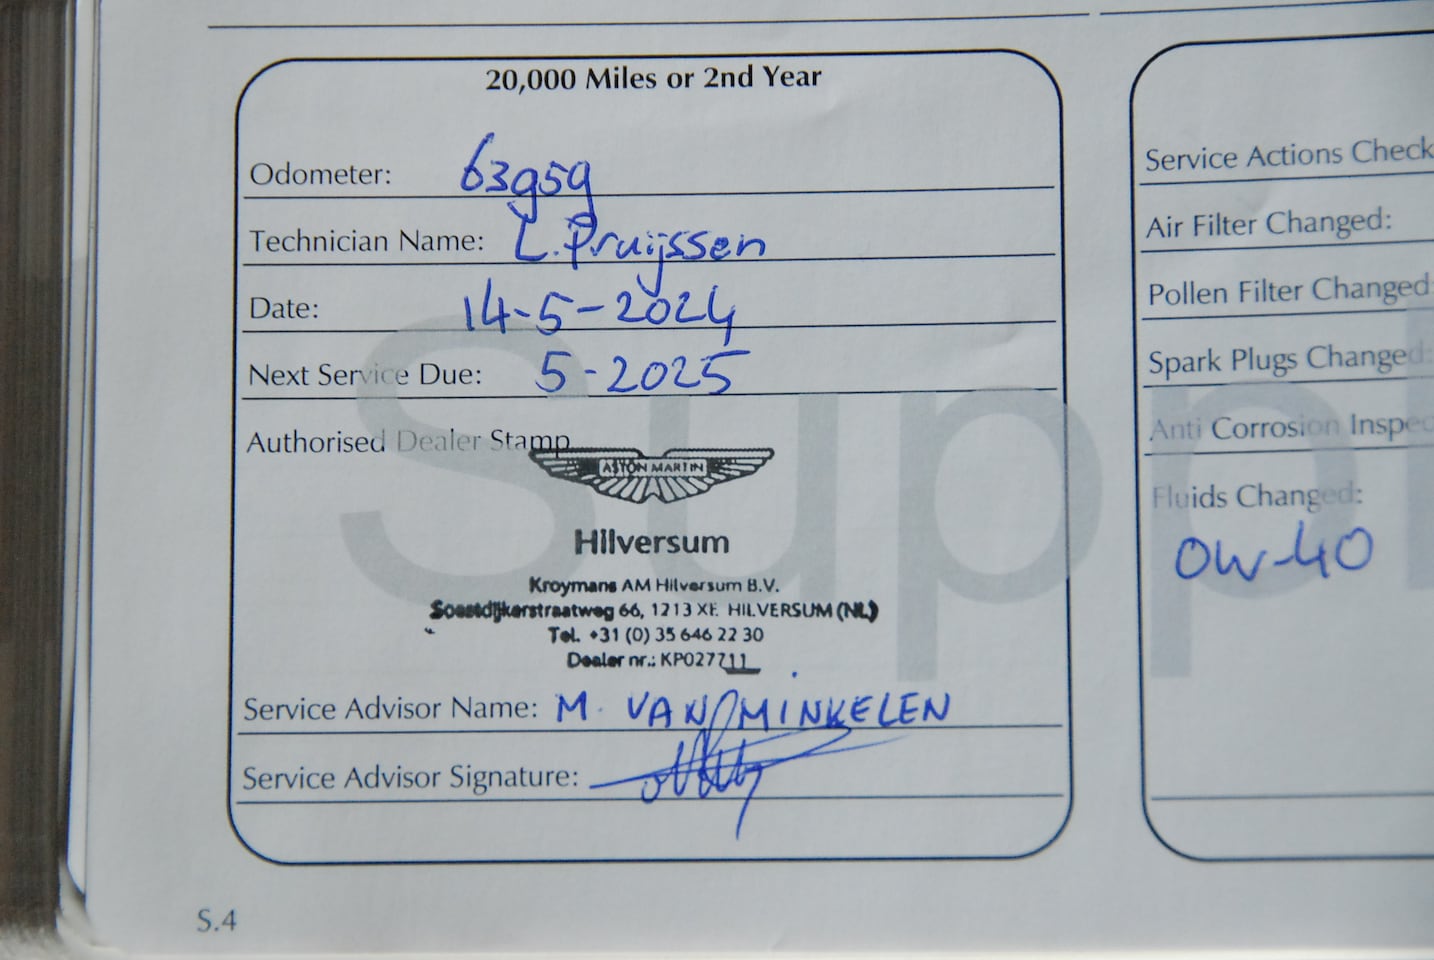 20,000 Miles or 2nd Year
Odometer: 63959
Technician Name: L. Pruijssen
Date: 14-5-2024
Next Service Due: 5-2025
Authorised Dealer Stamp
ASTON MARTIN
Hilversum
Kroymans AM Hilversum B.V.
Soestdijkerstraatweg 66, 1213 XE HILVERSUM (NL)
Tel. +31 (0) 35 646 22 30
Dealer nr.: KP027711
Service Advisor Name: M. VAN MINKELEN
Service Advisor Signature:
S.4
Service Actions Check
Air Filter Changed:
Pollen Filter Changed:
Spark Plugs Changed:
Anti Corrosion Inspec
Fluids Changed:
0W-40
Suppl